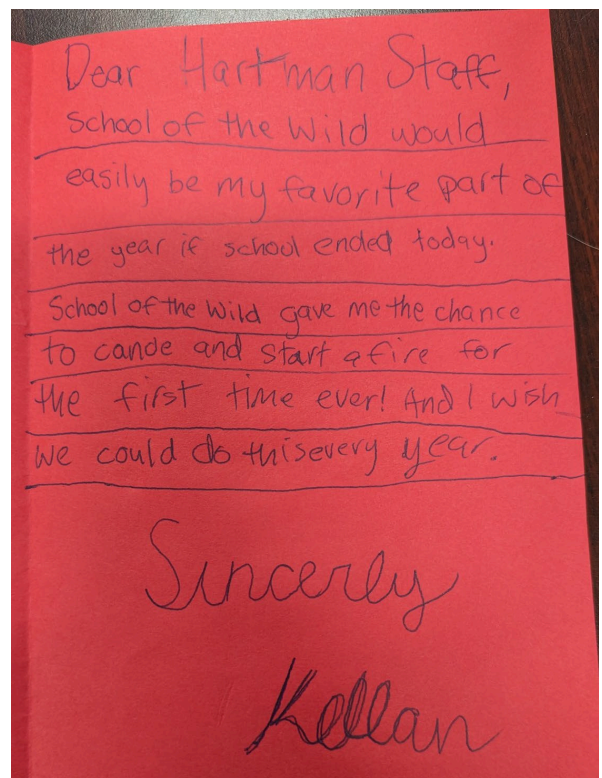 Dear Hartman Staff,
School of the Wild would
easily be my favorite part of
the year if school ended today.
School of the Wild gave me the chance
to canoe and start a fire for
the first time ever! And I wish
we could do this every year.
Sincerly
Kellan